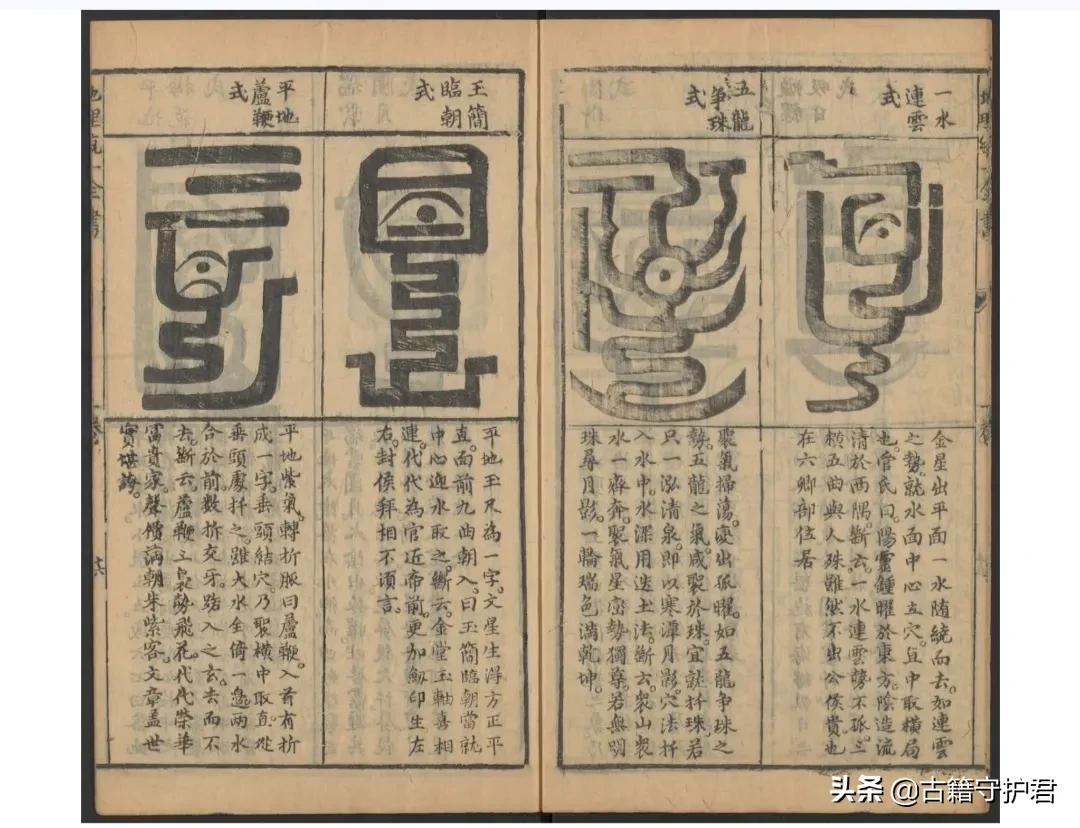 一水
連雲
式
金星出平面一水随繞而去。如連雲
之勢。就水面中心立穴。且中取橫局
也。管氏曰。陽靈鍾曜於東方。陰造流
清於兩隅。斷云。一水連雲勢不孤。三
橫五曲與人殊。雖然不出公侯貴。也
在六卿御位居
五龍
爭珠
式
聚氣掃蕩。変出孤曜。如五龍爭珠之
勢。五龍之氣。咸聚於珠。宜就扦珠。若
只一泓清泉。即以寒潭月影。穴法扦
入水中。水深用迭土法。斷云。衆山衆
水一齊奔。聚氣星巒勢獨尊。若無明
珠尋月影。一輪瑞色滿乾坤。
玉簡
臨朝
式
平地玉尺為一字。文星生得方正平
直。面前九曲朝入。曰玉簡臨朝。當就
中心迎水取之。斷云。金堂玉軸喜相
連。代代為官近帝前。更加劔印生左
右。封侯拜相不須言。
平地
蘆鞭
式
平地紫氣。轉折脈曰蘆鞭。入首有折
成一字。垂頭結穴。乃聚橫中取直。從
垂頭處扦之。雖大水全倚一邊。兩水
合於前。數折交牙。踏入之玄。去而不
去。斷云。蘆鞭三裊勢飛花。代代榮華
富貴家。聲價滿朝朱紫客。文章盖世
實堪誇。
头条 @古籍守护君